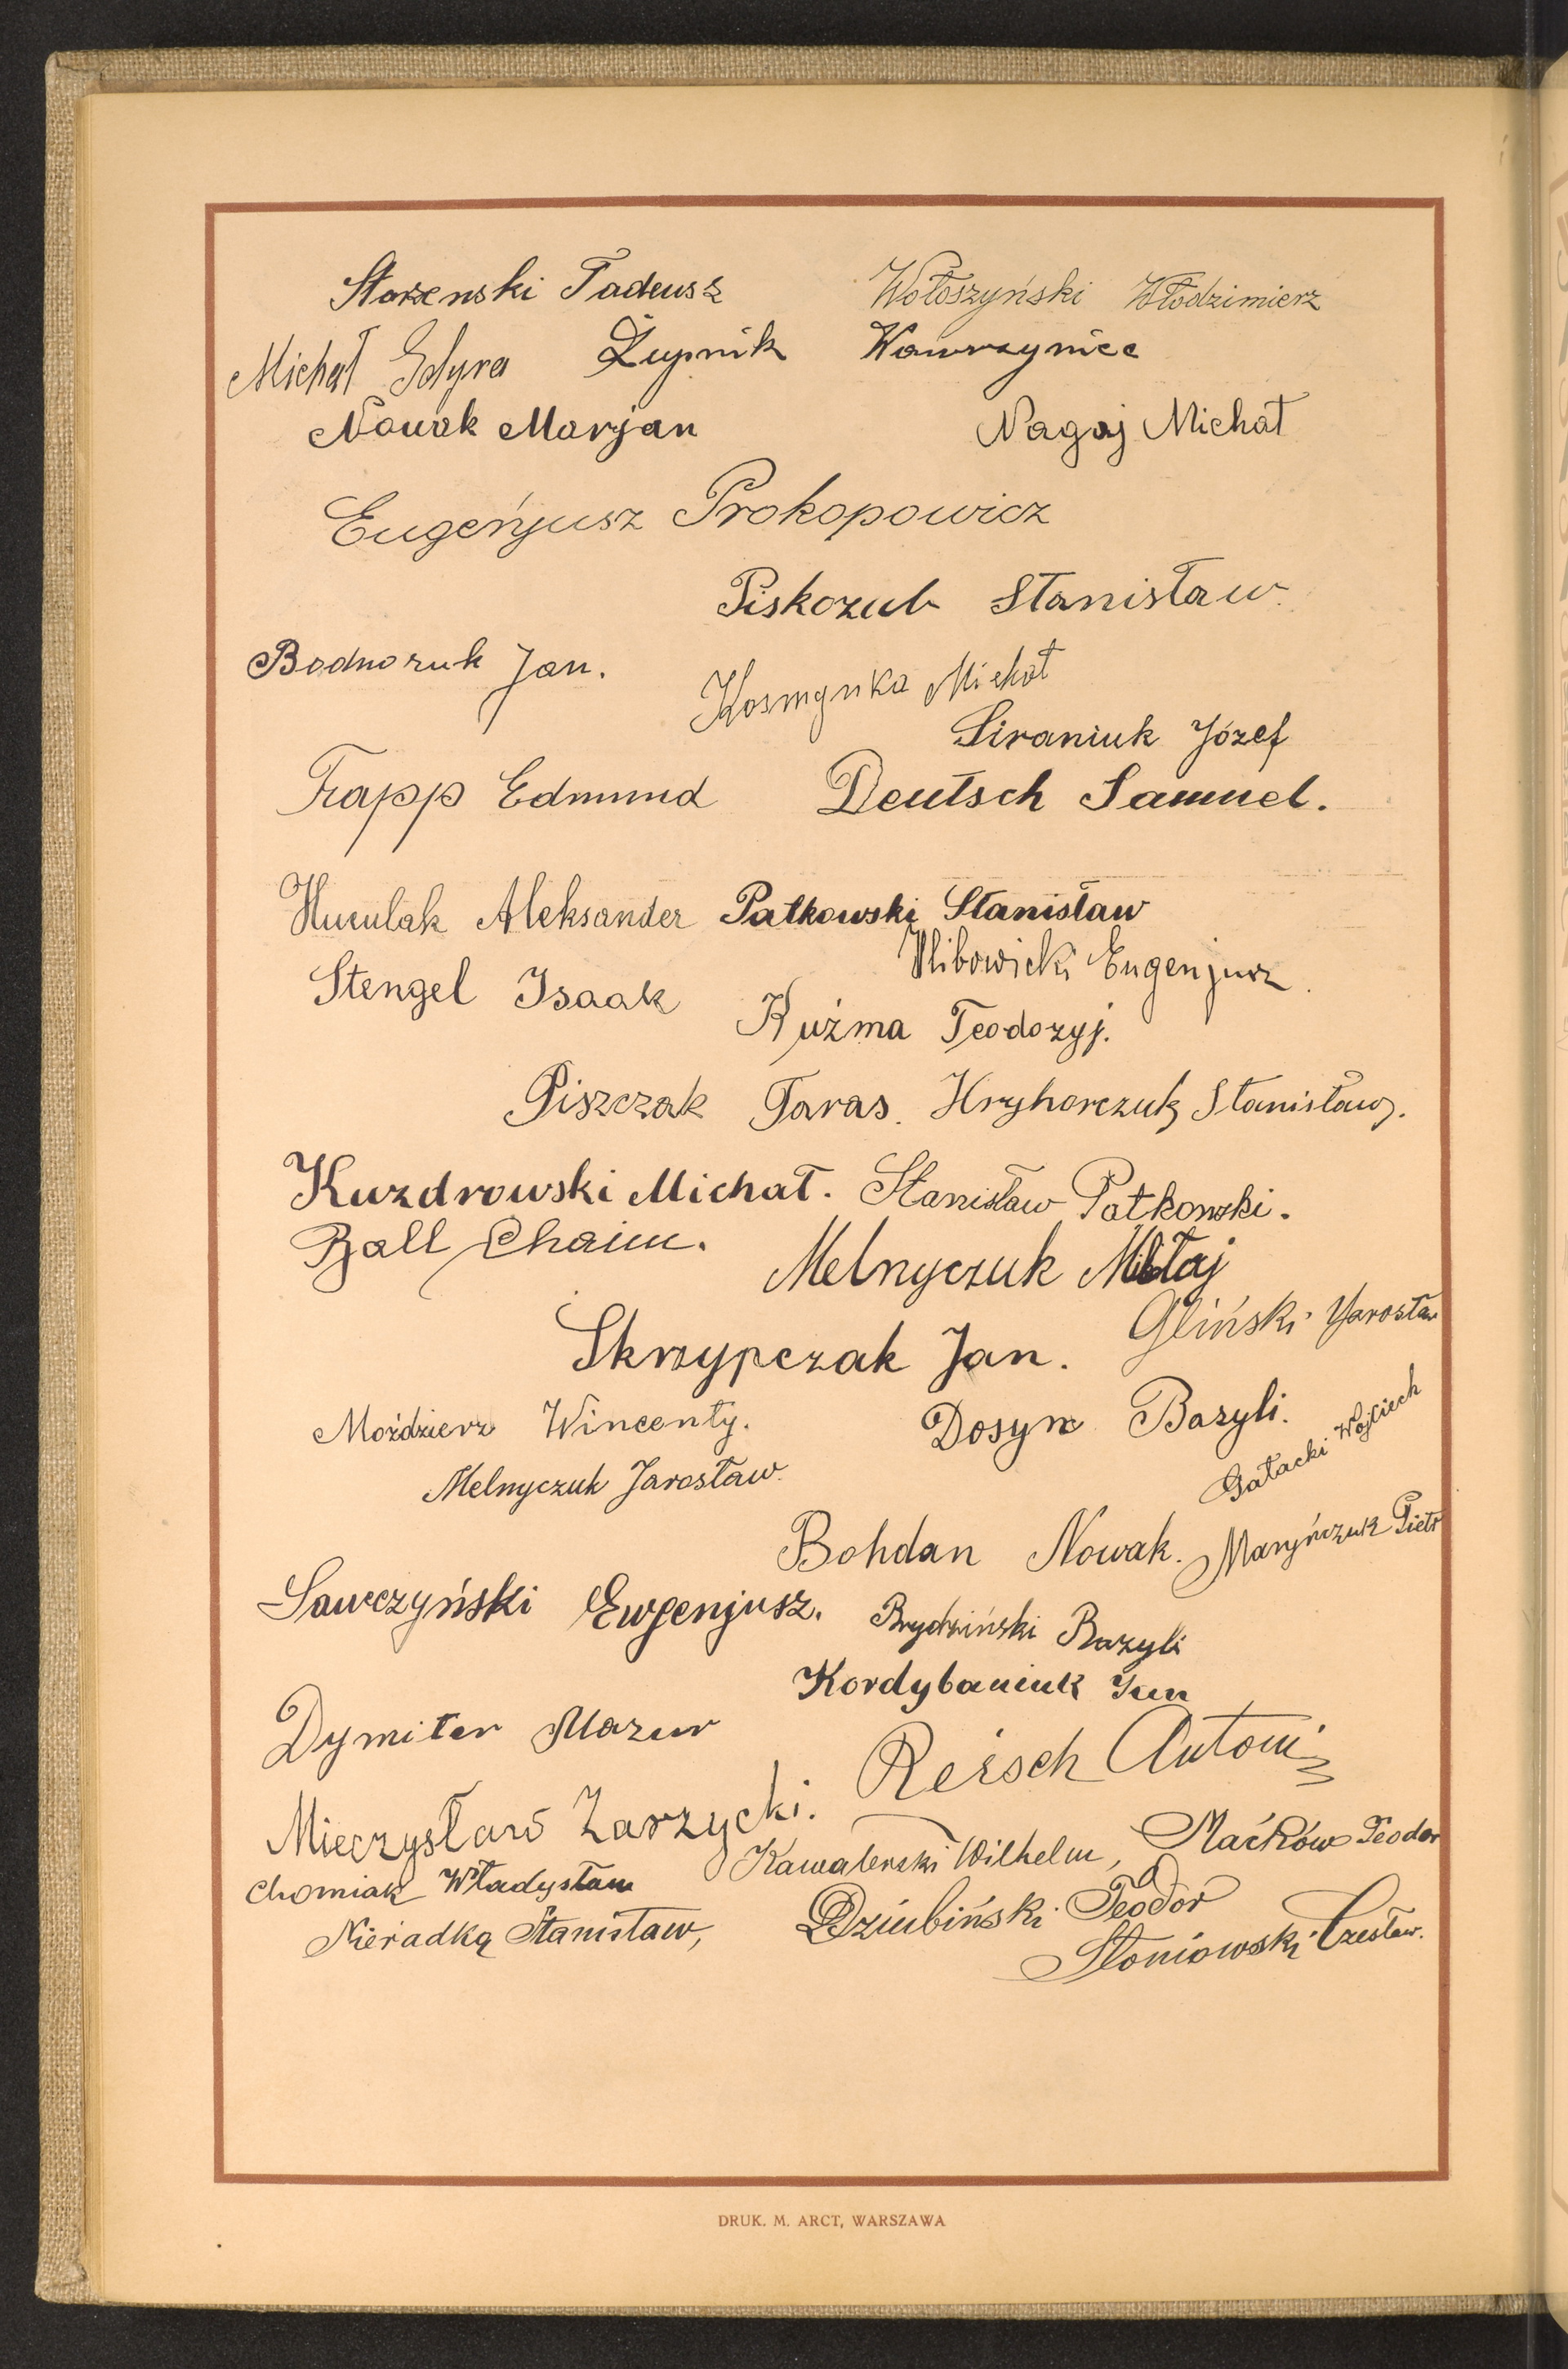 Starzenski Tadeusz Wołoszyński Włodzimierz
Michał Gdyra Żupnik Wawrzyniec
Nowak Marjan Nagaj Michał
Eugenjusz Prokopowicz
Piskozub Stanisław
Bodnaruk Jan. Kosmynka Michał
Siraniuk Józef
Trapp Edmund Deutsch Samuel.
Huculak Aleksander Patkowski Stanisław
Hlibowicki Eugenjusz
Stengel Isaak Kuźma Teodozyj.
Piszczak Taras. Hryhorczuk Stanisław.
Kuzdrowski Michał. Stanisław Patkowski.
Ball Chaim. Melnyczuk
Skrzypczak Jan. Gliński Jarosław
Moździerz Wincenty. Dosyn Bazyli. Gałacki Wojciech
Melnyczuk Jarosław.
Bohdan Nowak. Maryńczuk Piotr
Sawczyński Ewgenjusz. Brydziński Bazyli
Kordybaniuk Jan
Dymiter Mazur Reisch Antoni
Mieczysław Zarzycki. Kawalerski Wilhelm, Maćków Teodor
Chomiak Władysław Dziubiński Teodor
Nieradka Stanisław, Słoniowski Czesław.
DRUK. M. ARCT, WARSZAWA